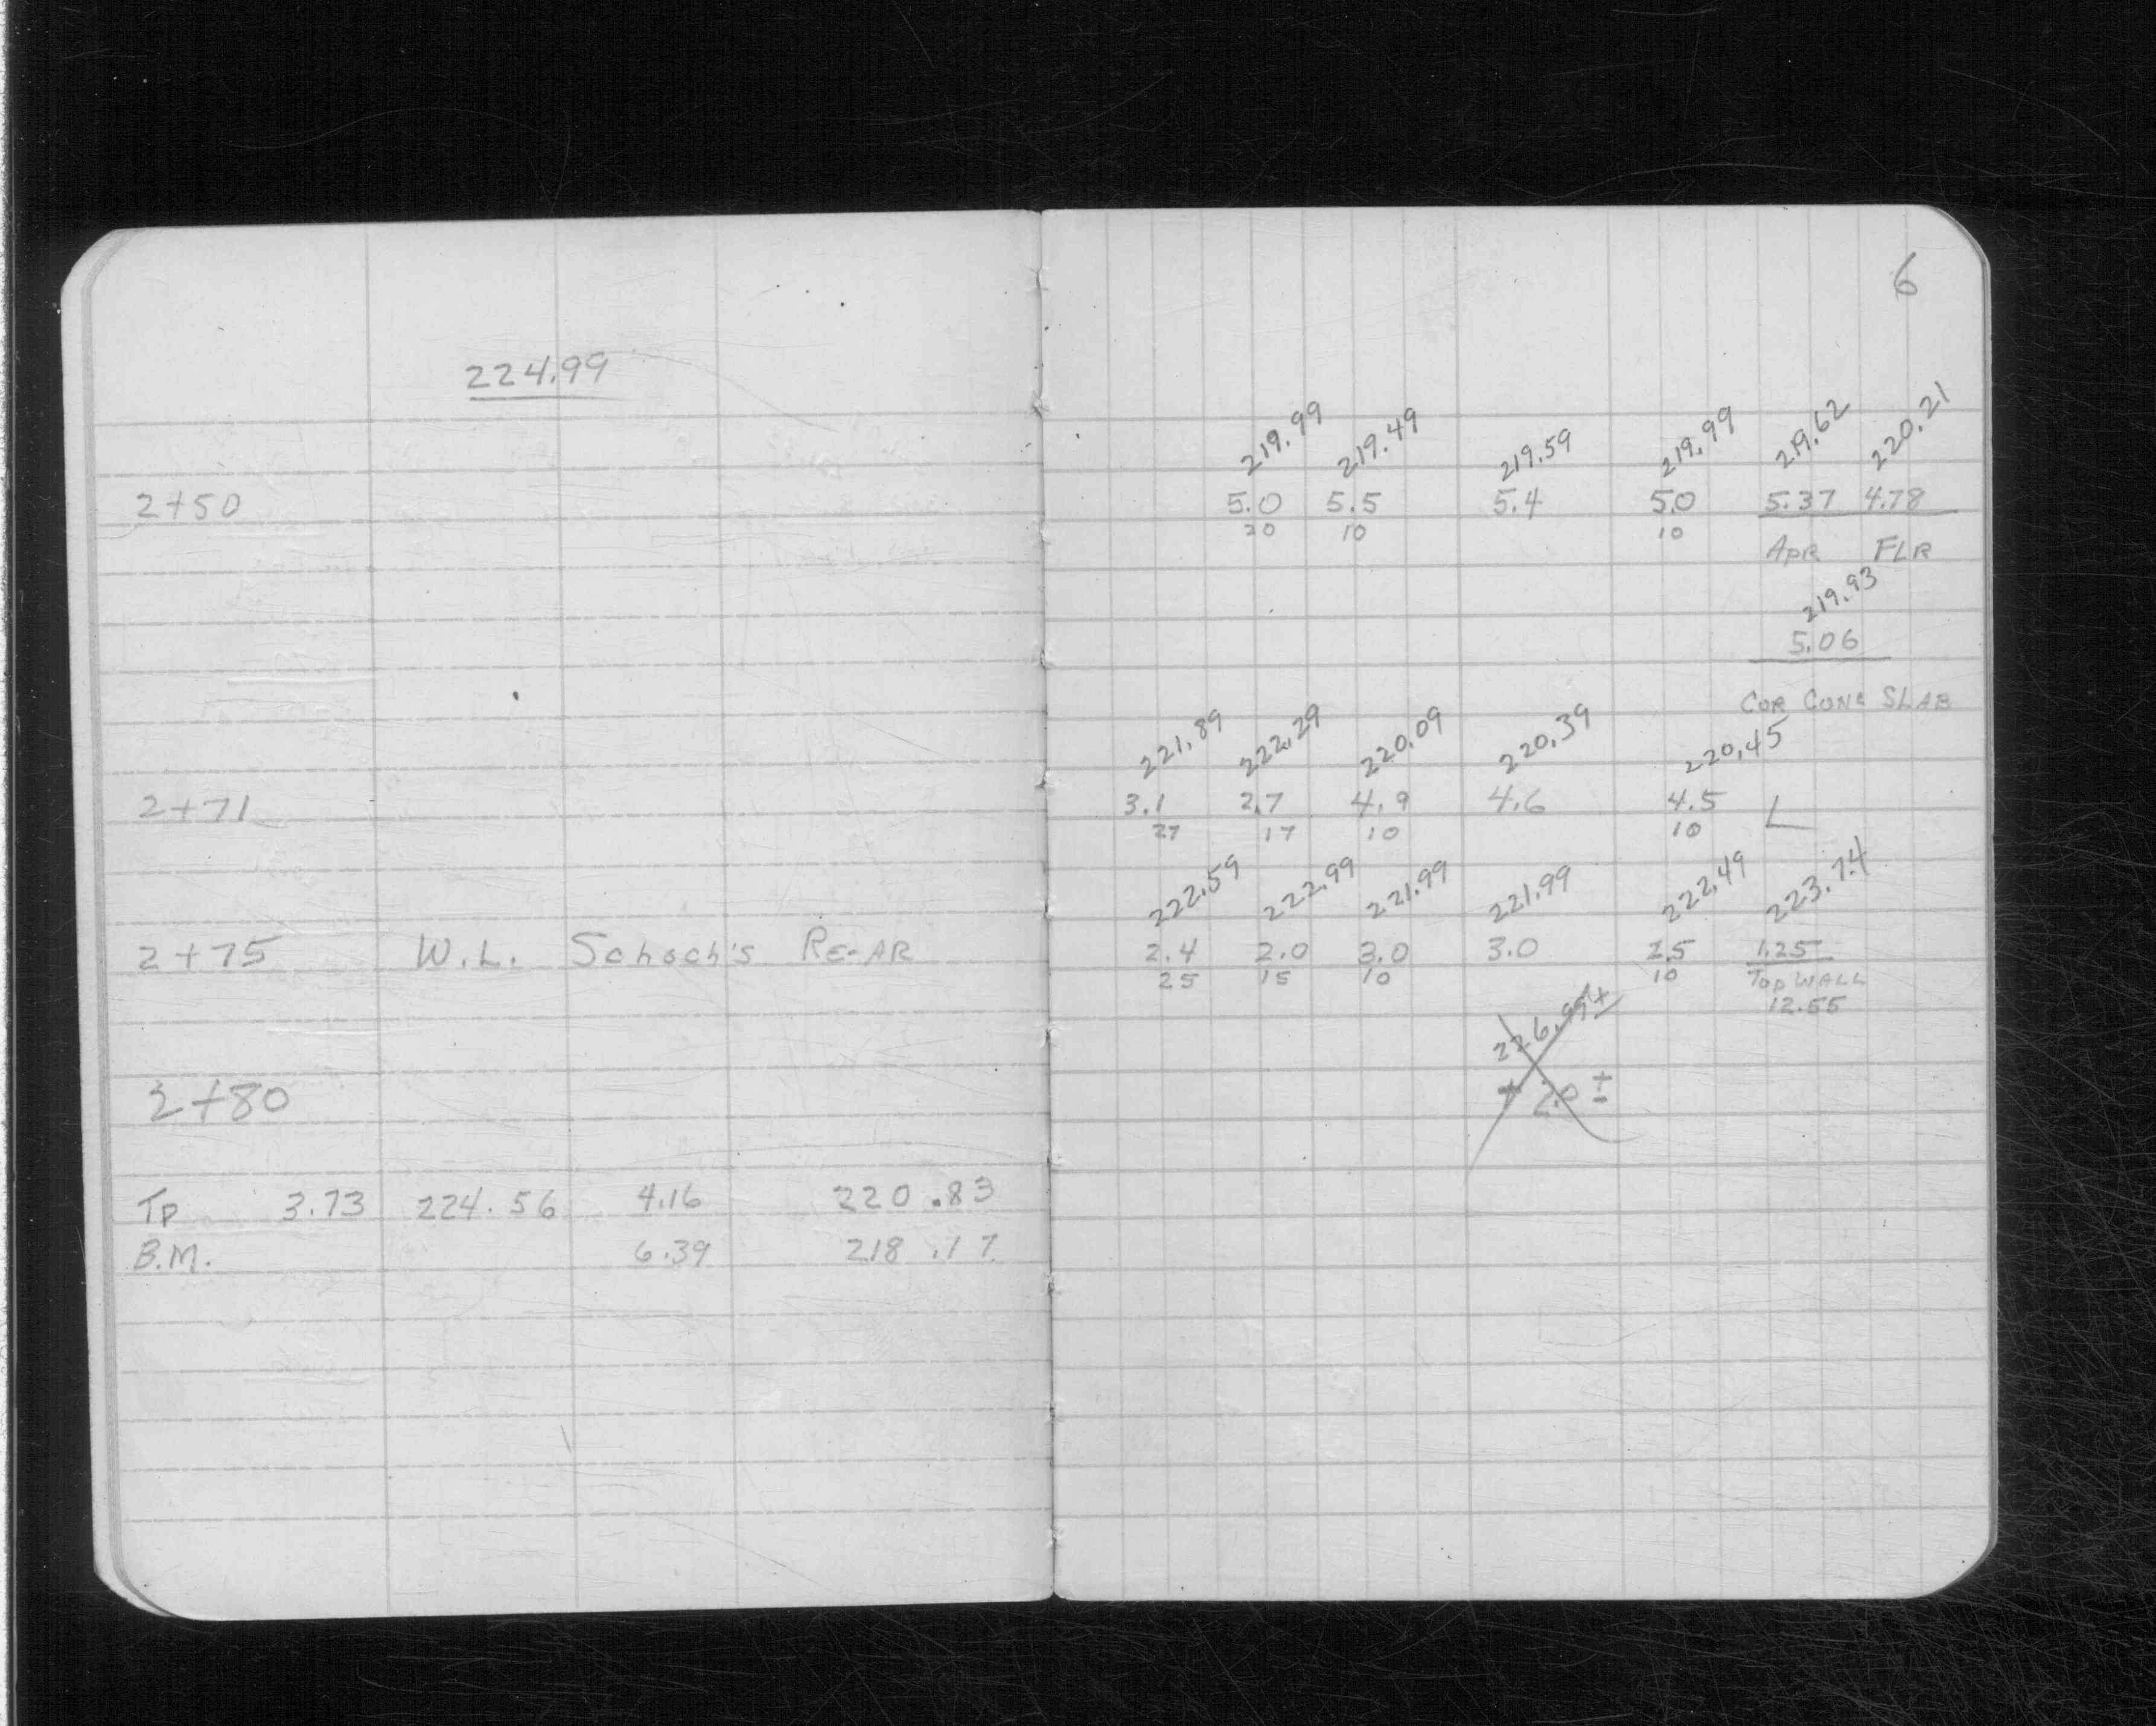 6
224.99
219.99 219.49 219.59 219.99 219.62 220.21
2+50 5.0 5.5 5.4 5.0 5.37 4.78
20 10 10
APR FLR
219.93
5.06
COR CONC SLAB
221.89 222.29 220.09 220.39 220.45
2+71 3.1 2.7 4.9 4.6 4.5
27 17 10 10
222.59 222.99 221.99 221.99 222.49 223.74
2+75 W.L. Schoch's RE-AR 2.4 2.0 3.0 3.0 2.5 1.25
25 15 10 10 TOP WALL
12.55
226.99±
2+80 + 2.0 ±
TP 3.73 224.56 4.16 220.83
B.M. 6.39 218.17